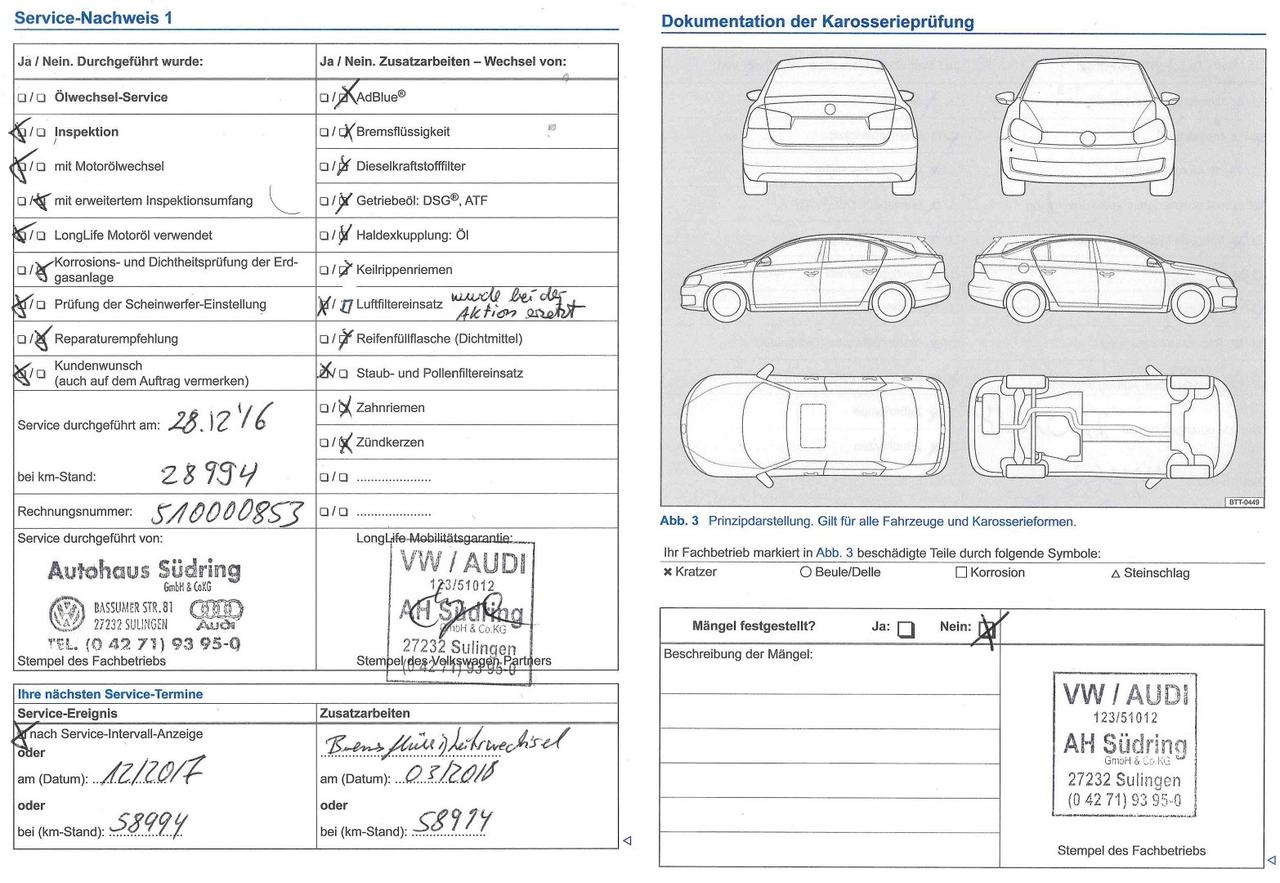 Service-Nachweis 1
Ja / Nein. Durchgeführt wurde:
Ölwechsel-Service
Inspektion
mit Motorölwechsel
mit erweitertem Inspektionsumfang
LongLife Motoröl verwendet
Korrosions- und Dichtheitsprüfung der Erd-
gasanlage
Prüfung der Scheinwerfer-Einstellung
Reparaturempfehlung
Kundenwunsch
(auch auf dem Auftrag vermerken)
Service durchgeführt am: 28.12'16
bei km-Stand: 28994
Rechnungsnummer: 510000853
Service durchgeführt von:
Autohaus Südring
GmbH & CoKG
BASSUMER STR. 81
27232 SULINGEN
Audi
TEL. (0 42 71) 93 95-0
Stempel des Fachbetriebs
Ja / Nein. Zusatzarbeiten – Wechsel von:
AdBlue®
Bremsflüssigkeit
Dieselkraftstofffilter
Getriebeöl: DSG®, ATF
Haldexkupplung: Öl
Keilrippenriemen
Luftfiltereinsatz wurde bei der
Aktion ersetzt
Reifenfüllflasche (Dichtmittel)
Staub- und Pollenfiltereinsatz
Zahnriemen
Zündkerzen
LongLife Mobilitätsgarantie:
VW / AUDI
123/51012
AH Südring
GmbH & Co.KG
27232 Sulingen
(0 42 71) 93 95-0
Stempel des Volkswagen Partners
Ihre nächsten Service-Termine
Service-Ereignis
nach Service-Intervall-Anzeige
oder
am (Datum): 12/2017
oder
bei (km-Stand): 58994
Zusatzarbeiten
Bremsflüssigkeitswechsel
am (Datum): 03/2018
oder
bei (km-Stand): 58994
Dokumentation der Karosserieprüfung
BTT-0449
Abb. 3 Prinzipdarstellung. Gilt für alle Fahrzeuge und Karosserieformen.
Ihr Fachbetrieb markiert in Abb. 3 beschädigte Teile durch folgende Symbole:
Kratzer Beule/Delle Korrosion Steinschlag
Mängel festgestellt? Ja: Nein:
Beschreibung der Mängel:
VW / AUDI
123/51012
AH Südring
GmbH & Co.KG
27232 Sulingen
(0 42 71) 93 95-0
Stempel des Fachbetriebs